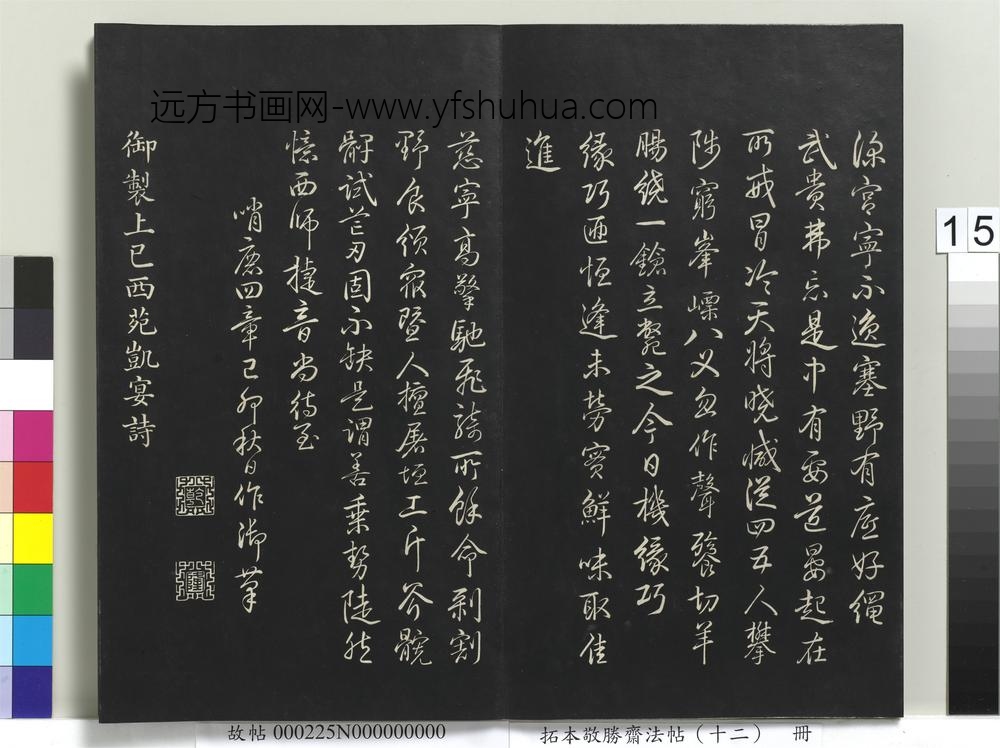 远方书画网-www.yfshuhua.com
深宫寧不逸塞野有底好繩
武貴弗忘是中有要道晏起在
所戒冒冷天将晓减从四五人攀
陟窮峯嶫八义忽作聲發切羊
腸繞一鎗立斃之今日機緣巧
緣巧匪恒逢未勞實鮮味取佳
進
慈寧髙擎馳飛騎所餘命剥割
野食须眾暨人擅屠垣工斤斧髋
髀試芒刃固不缺是谓善乗势陡然
憶西师捷音尚待至
哨鹿四章己卯秋日作御筆
御製上巳西苑凱宴詩
15
故帖 000225N000000000
拓本敬勝齋法帖（十二） 冊